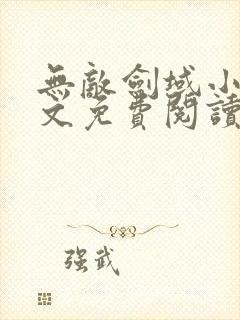 無敵劍域小
文免費閱讀
强武